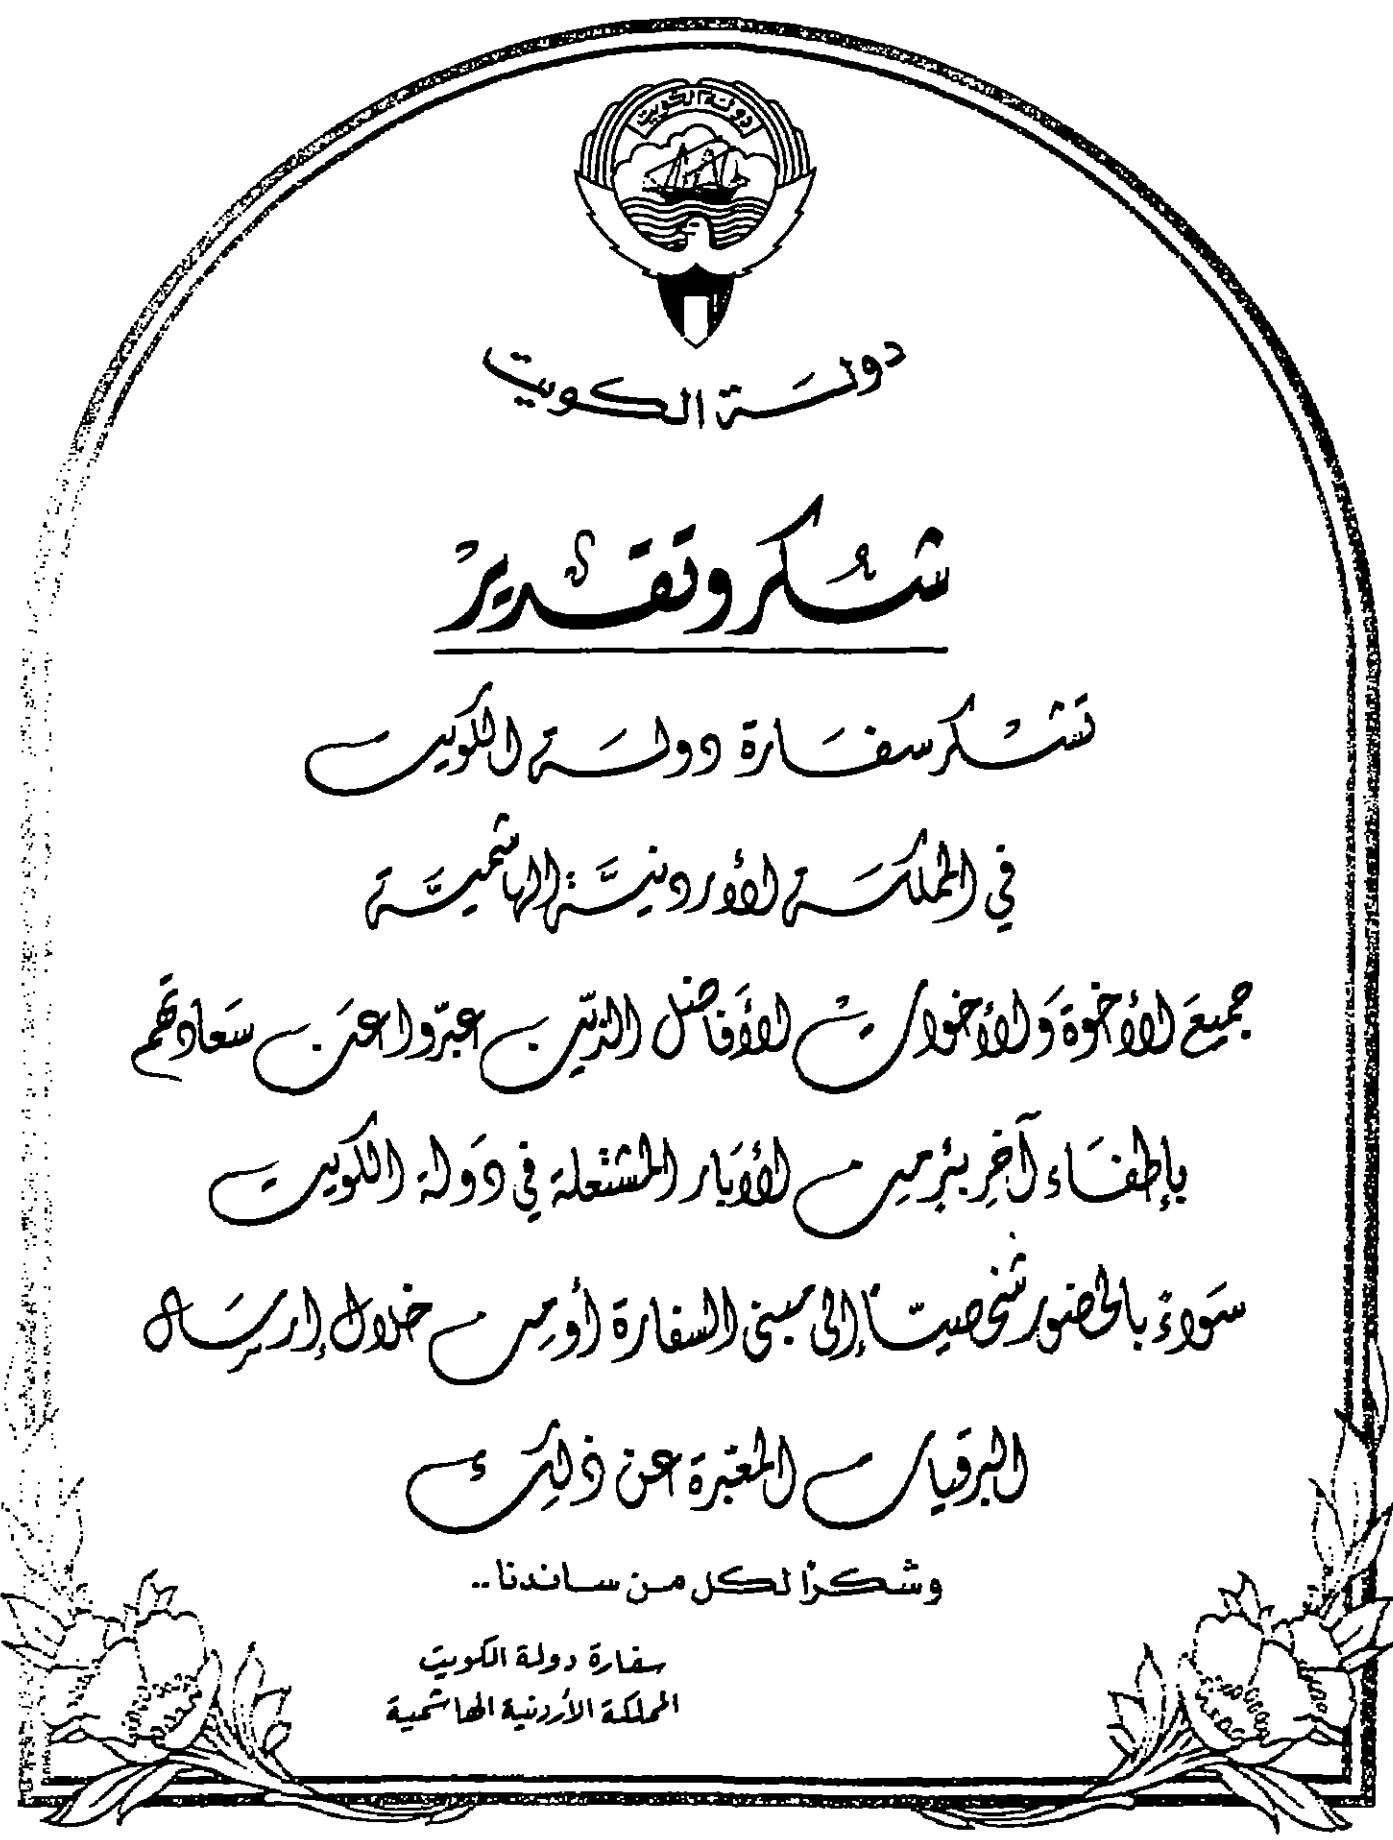 دولة الكويت
دولة الكويت
شكر وتقدير
تشكر سفارة دولة الكويت
في المملكة الأردنية الهاشمية
جميع الأخوة والأخوات الأفاضل الذين عبّروا عن سعادتهم
بإطفاء آخر بئر من الأبار المشتعلة في دولة الكويت
سواءً بالحضور شخصيّاً إلى مبنى السفارة أو من خلال إرسال
البرقيات المعبّرة عن ذلك
وشكراً لكل من ساندنا..
سفارة دولة الكويت
المملكة الأردنية الهاشمية